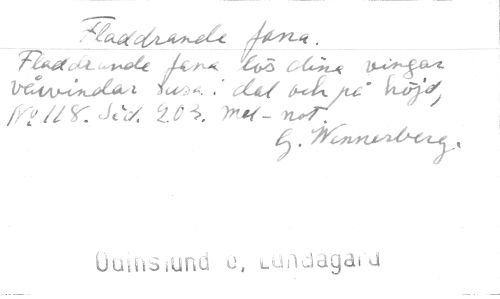 Fladdrande fana.
Fladdrande fana lös dina vingar
vårvindar susa i dal och på höjd,
No 118. Sid. 203. mel-not.
G. Wennerberg.
Odinslund o, Lundagård